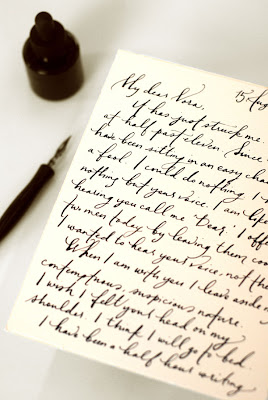 15 Aug
My dear Nora,
It has just struck me.
at half past eleven. Since
have been sitting in an easy cha
a fool. I could do nothing. I
nothing but your voice. I am like
hearing you call me 'Dear.' I off
two men today by leaving them coo
I wanted to hear your voice, not the
When I am with you I leave aside m
contemptuous, suspicious nature.
I wish I felt your head on my
shoulder. I think I will go to bed.
I have been a half-hour writing